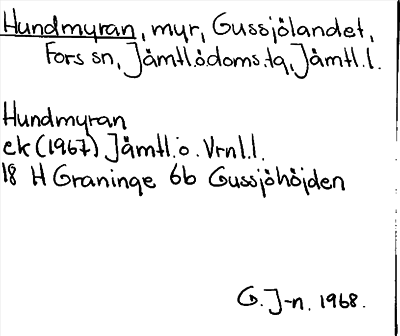 Hundmyran, myr, Gussjölandet,
Fors sn, Jämtl.ö.doms.tg, Jämtl.l.
Hundmyran
ek (1967) Jämtl. o. Vrnl.l.
18 H Graninge 6b Gussjöhöjden
G. J-n. 1968.